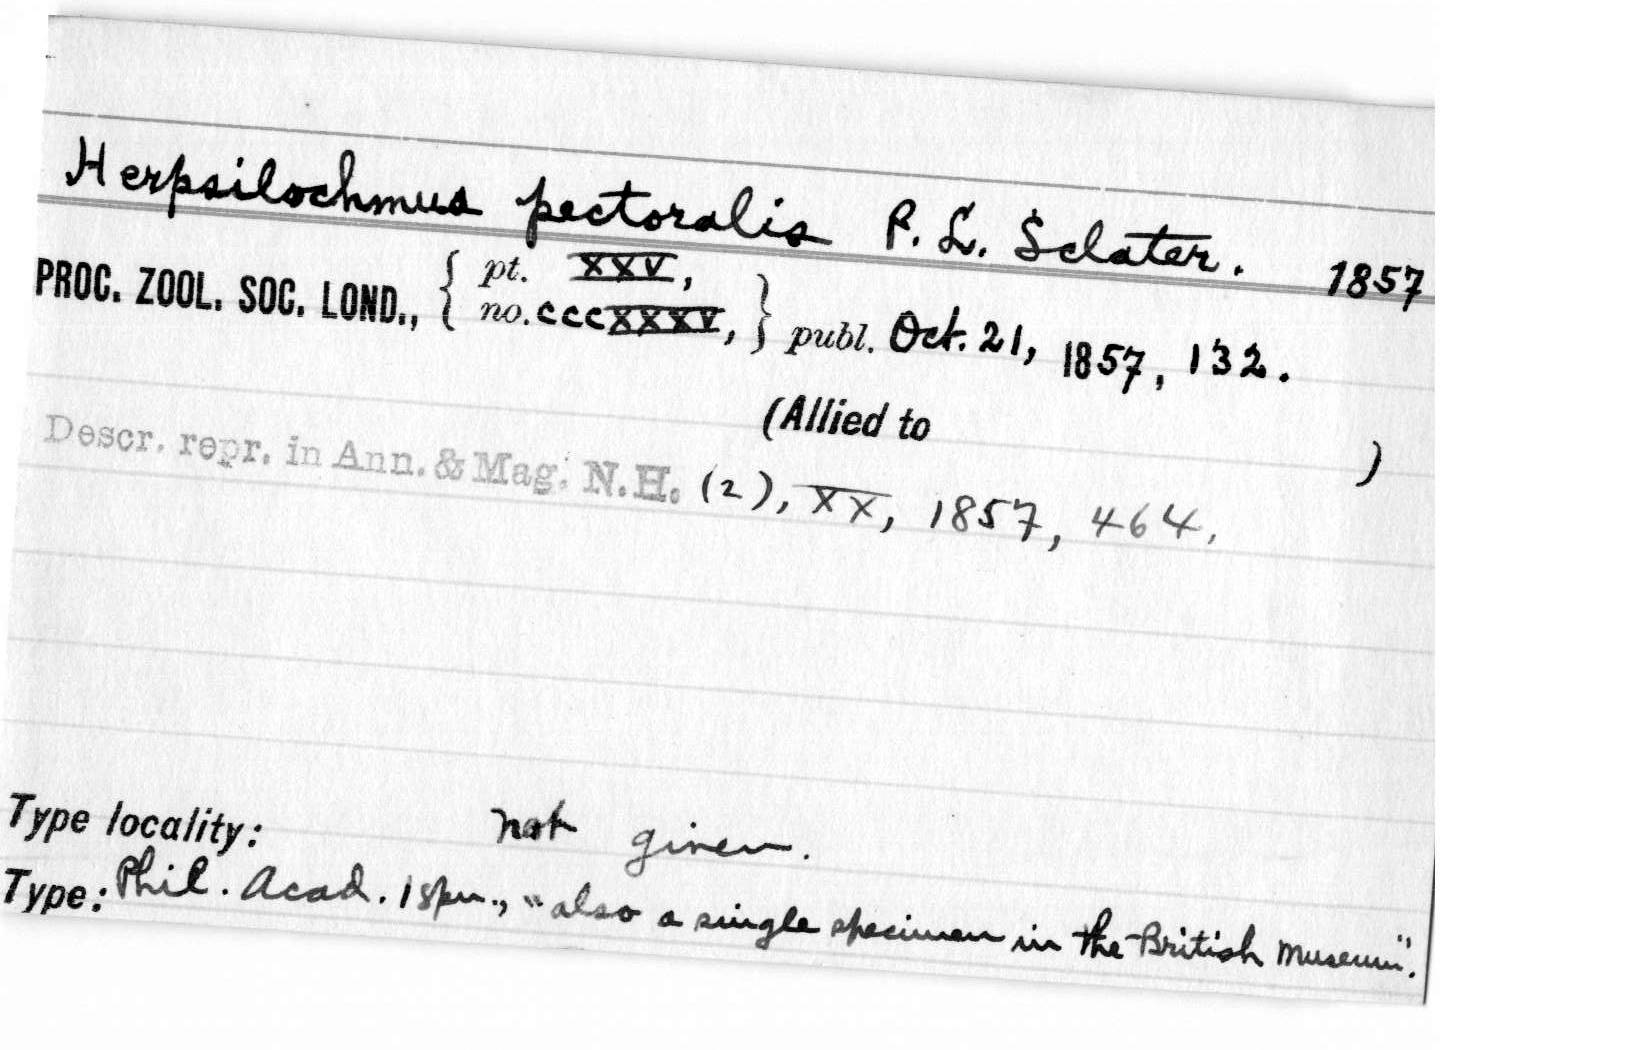 Herpsilochmus pectoralis P. L. Sclater. 1857
PROC. ZOOL. SOC. LOND., { pt. XXV,
no. cccXXXV, } publ. Oct. 21, 1857, 132.
(Allied to )
Descr. repr. in Ann. & Mag. N.H. (2), XX, 1857, 464.
Type locality: not given.
Type: Phil. Acad. 1 spm., "also a single specimen in the British Museum".